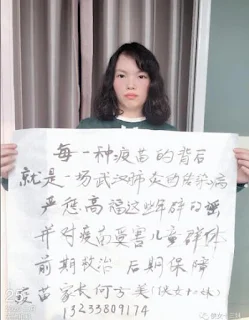 每一种疫苗的背后
就是一场武汉肺炎的传染病
严惩高福这些群
并对疫苗受害儿童群体
前期救治 后期保障
疫苗家长何方美(侠女十三妹)
13233809174